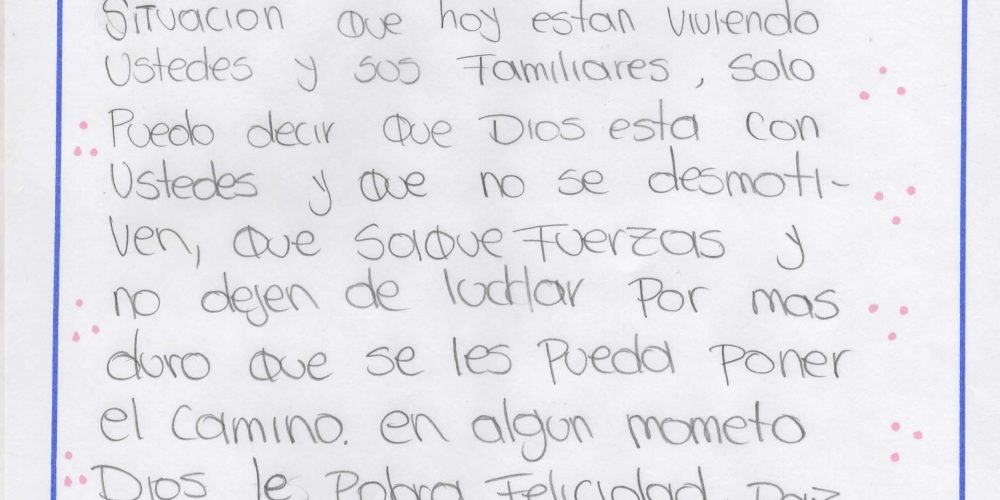 Situacion Que hoy estan viviendo
Ustedes y sus Familiares, solo
Puedo decir Que Dios esta con
Ustedes y Que no se desmoti-
ven, Que saQue Fuerzas y
no dejen de luchar Por mas
duro Que se les Pueda Poner
el Camino. en algun mometo
Dios le Felicidad